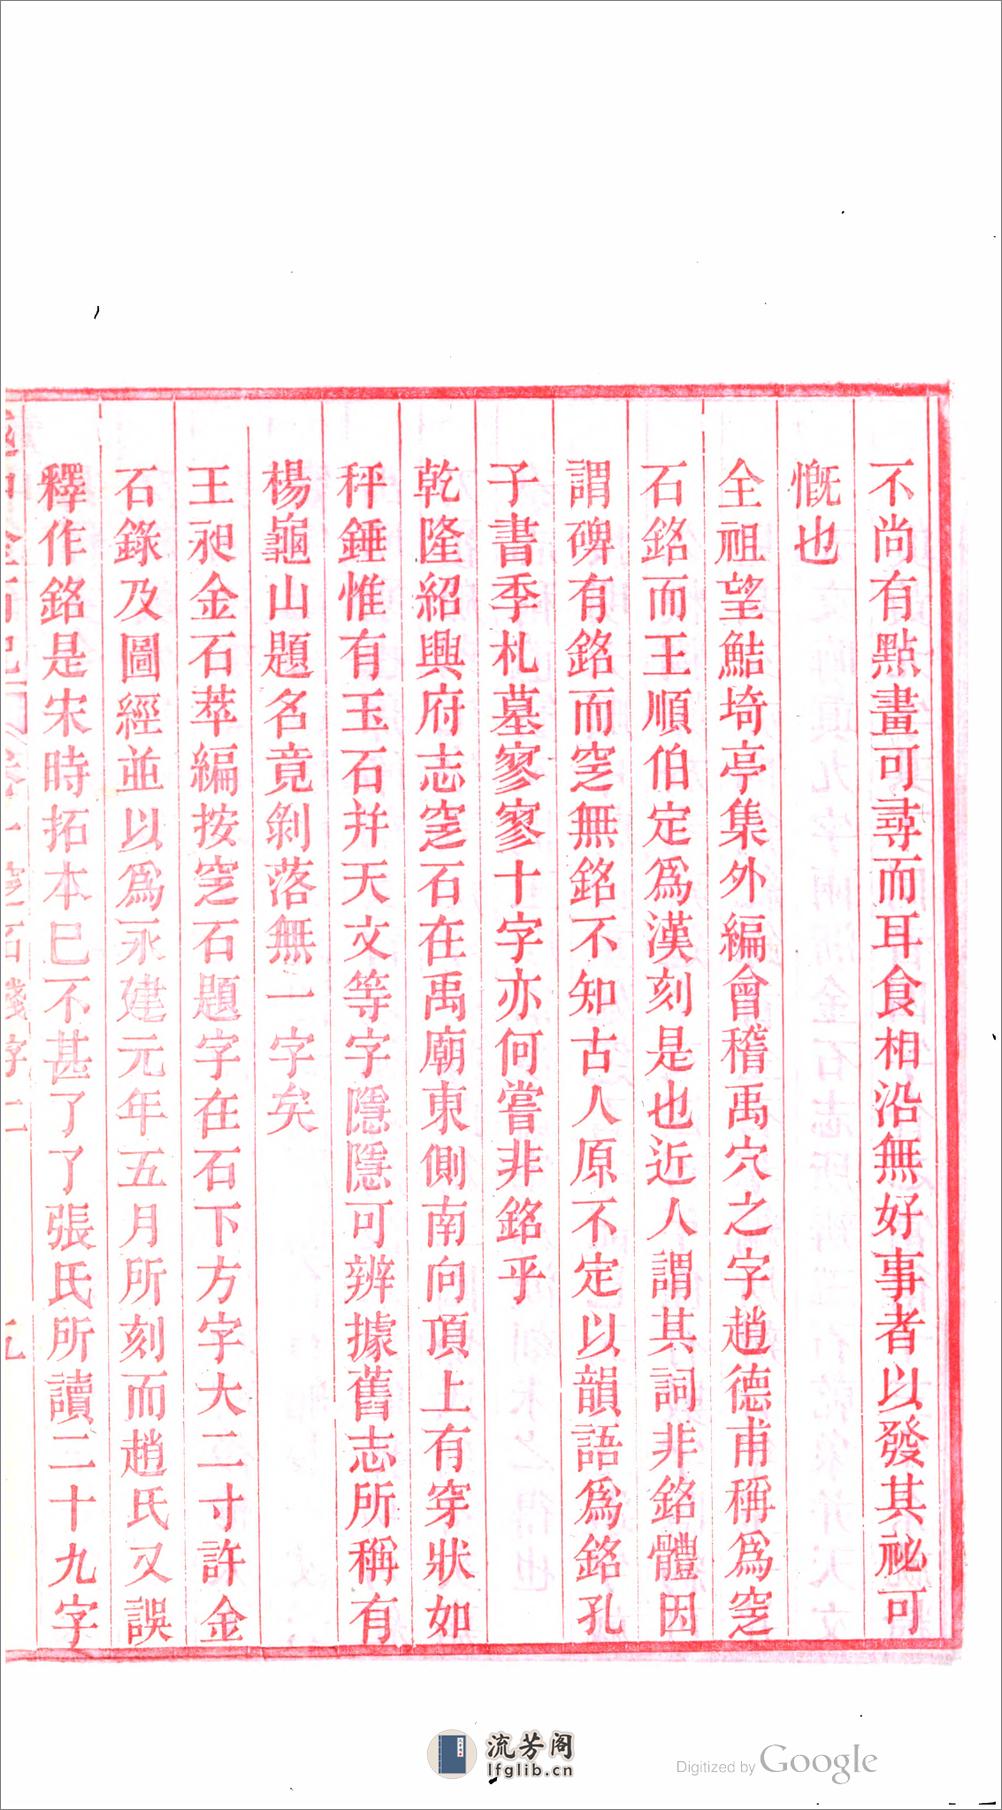 不尚有點畫可尋而耳食相沿無好事者以發其祕可
慨也
全祖望鮚埼亭集外編會稽禹穴之字趙德甫稱為窆
石銘而王順伯定為漢刻是也近人謂其詞非銘體因
謂碑有銘而窆無銘不知古人原不定以韻語為銘孔
子書季札墓寥寥十字亦何嘗非銘乎
乾隆紹興府志窆石在禹廟東側南向頂上有穿狀如
秤錘惟有玉石并天文等字隱隱可辨據舊志所稱有
楊龜山題名竟剝落無一字矣
王昶金石萃編按窆石題字在石下方字大二寸許金
石錄及圖經並以為永建元年五月所刻而趙氏又誤
釋作銘是宋時拓本已不甚了了張氏所讀二十九字
流芳阁
lfglib.cn
Digitized by Google